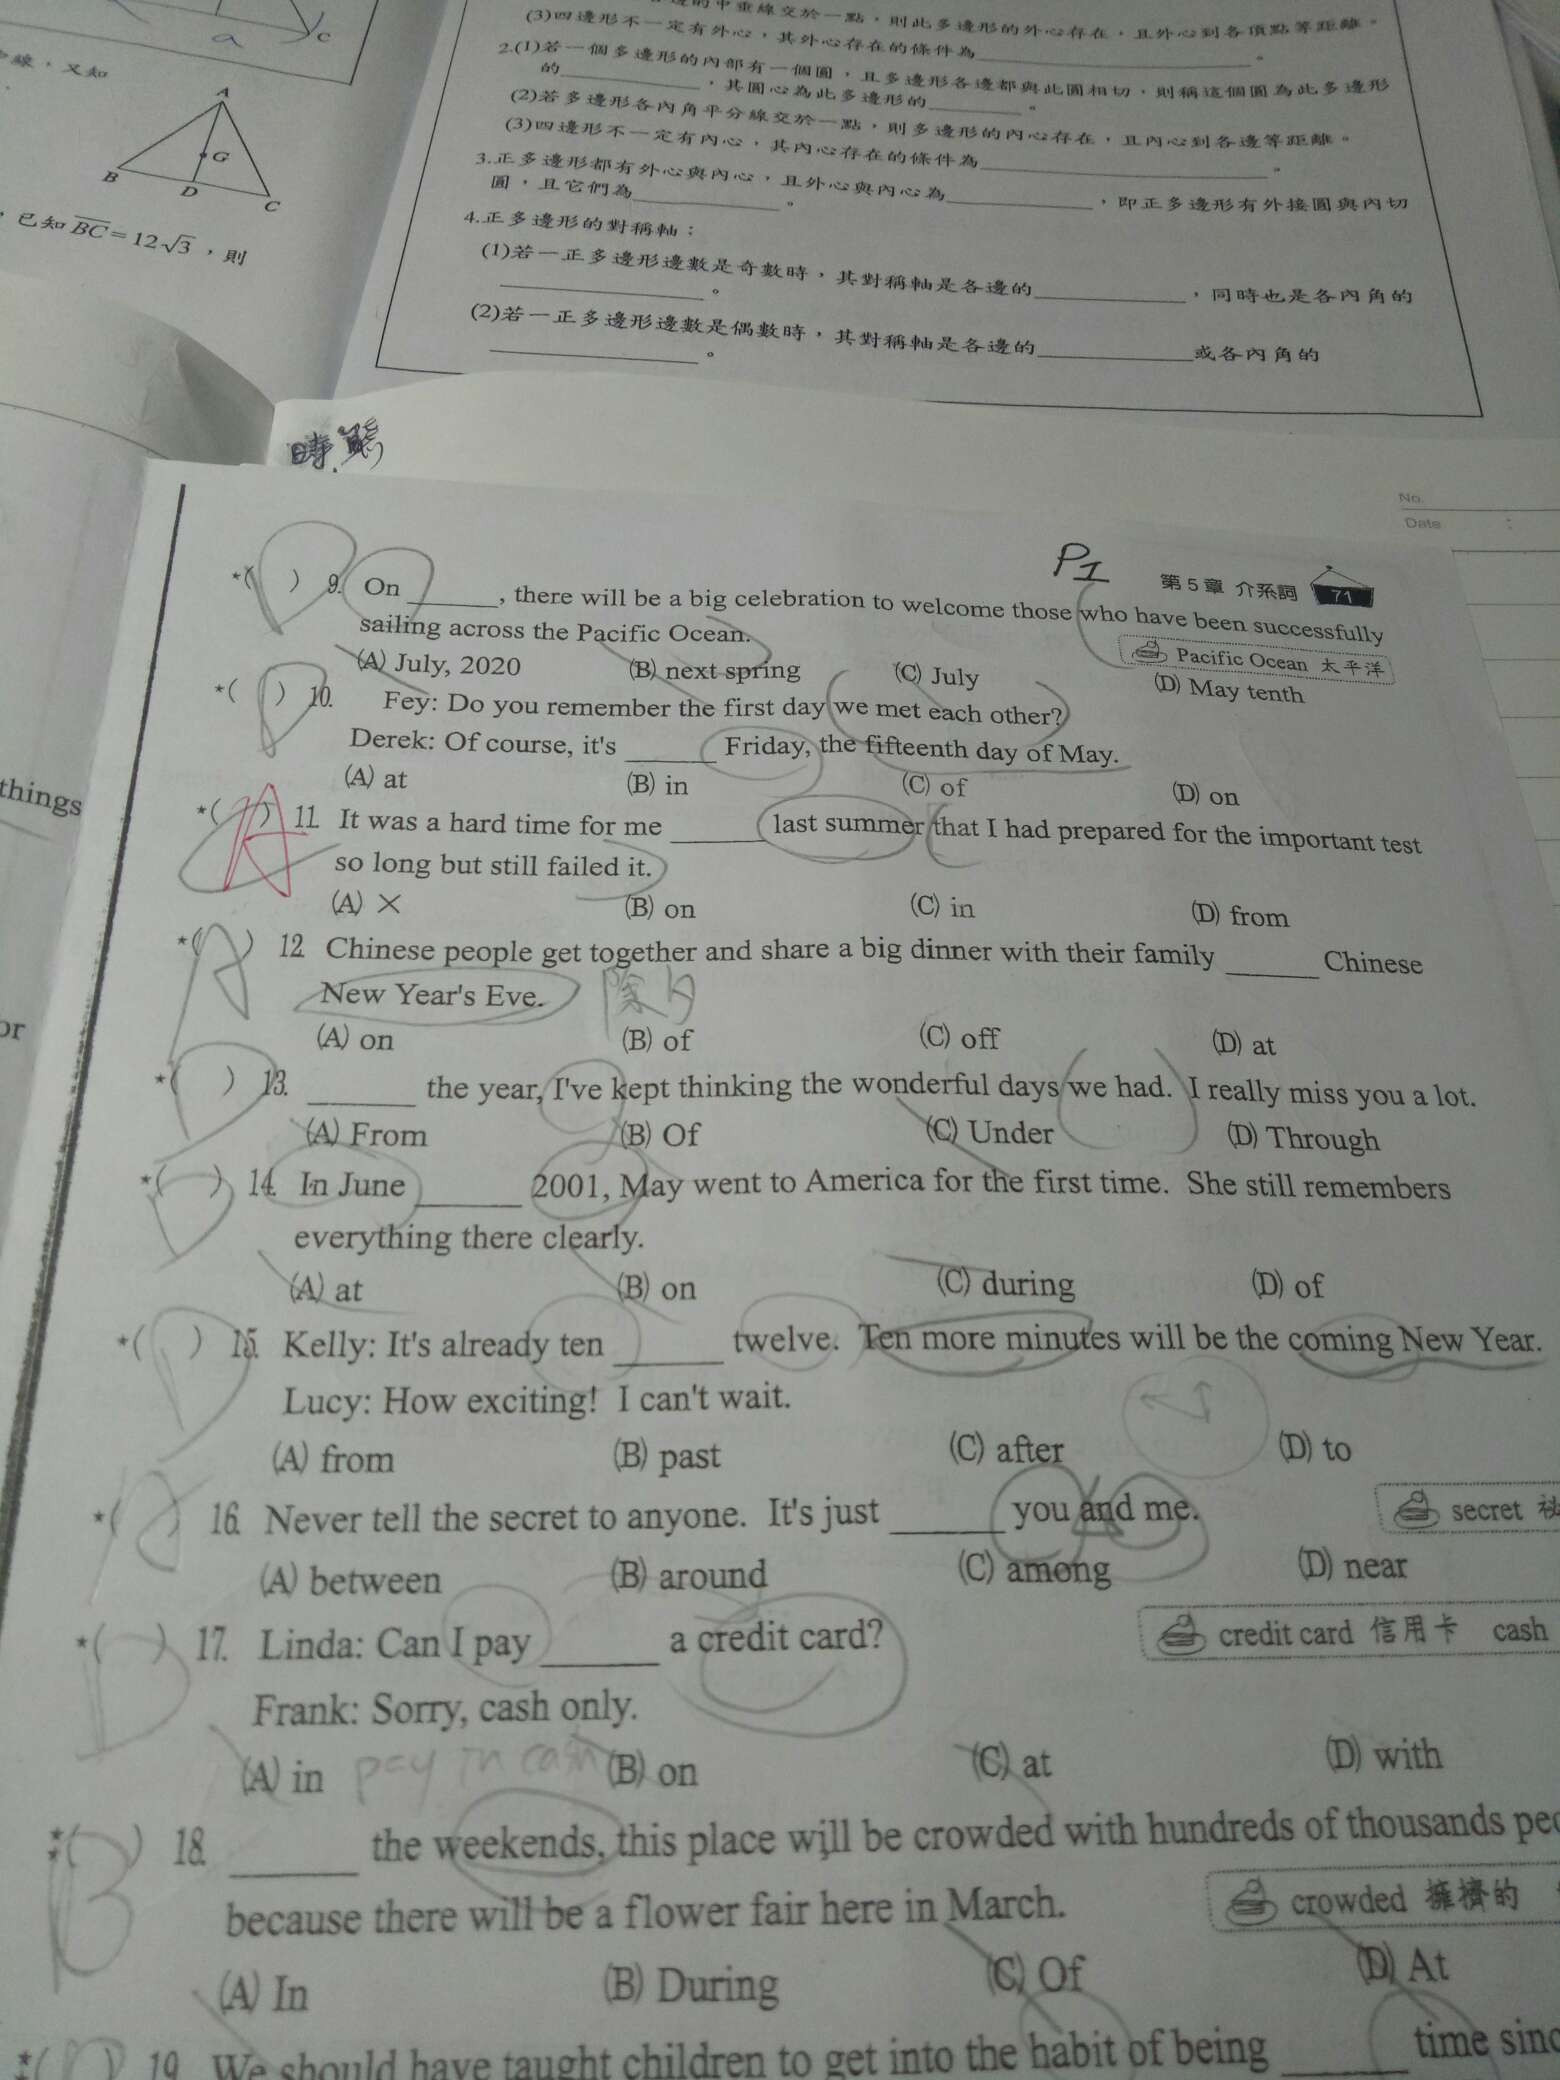 a
C
線，又知
A
G
B
D
C
，已知BC=12√3，則
邊的中垂線交於一點，則此多邊形的外心存在，且外心到各頂點等距離。
(3)四邊形不一定有外心，其外心存在的條件為____。
2.(1)若一個多邊形的內部有一個圓，且多邊形各邊都與此圓相切，則稱這個圓為此多邊形
的____，其圓心為此多邊形的____。
(2)若多邊形各內角平分線交於一點，則多邊形的內心存在，且內心到各邊等距離。
(3)四邊形不一定有內心，其內心存在的條件為____。
3.正多邊形都有外心與內心，且外心與內心為____，即正多邊形有外接圓與內切
圓，且它們為____。
4.正多邊形的對稱軸：
(1)若一正多邊形邊數是奇數時，其對稱軸是各邊的____，同時也是各內角的
____。
(2)若一正多邊形邊數是偶數時，其對稱軸是各邊的____或各內角的
____。
時態
No.
Date :
things
or
P1
第5章 介系詞 71
*(D) 9. On ____, there will be a big celebration to welcome those who have been successfully
sailing across the Pacific Ocean.
Pacific Ocean 太平洋
(A) July, 2020 (B) next spring (C) July (D) May tenth
*(D) 10. Fey: Do you remember the first day we met each other?
Derek: Of course, it's ____ Friday, the fifteenth day of May.
(A) at (B) in (C) of (D) on
*(A) 11. It was a hard time for me ____ last summer that I had prepared for the important test
so long but still failed it.
(A) × (B) on (C) in (D) from
*(A) 12. Chinese people get together and share a big dinner with their family ____ Chinese
New Year's Eve. 除夕
(A) on (B) of (C) off (D) at
*(D) 13. ____ the year, I've kept thinking the wonderful days we had. I really miss you a lot.
(A) From (B) Of (C) Under (D) Through
*(D) 14. In June ____ 2001, May went to America for the first time. She still remembers
everything there clearly.
(A) at (B) on (C) during (D) of
*(D) 15. Kelly: It's already ten ____ twelve. Ten more minutes will be the coming New Year.
Lucy: How exciting! I can't wait.
(A) from (B) past (C) after (D) to
*(A) 16. Never tell the secret to anyone. It's just ____ you and me.
secret
(A) between (B) around (C) among (D) near
*(D) 17. Linda: Can I pay ____ a credit card?
credit card 信用卡 cash
Frank: Sorry, cash only.
(A) in pay in cash (B) on (C) at (D) with
**(B) 18. ____ the weekends, this place will be crowded with hundreds of thousands
because there will be a flower fair here in March.
crowded 擁擠的
(A) In (B) During (C) Of (D) At
**( ) 19. We should have taught children to get into the habit of being ____ time